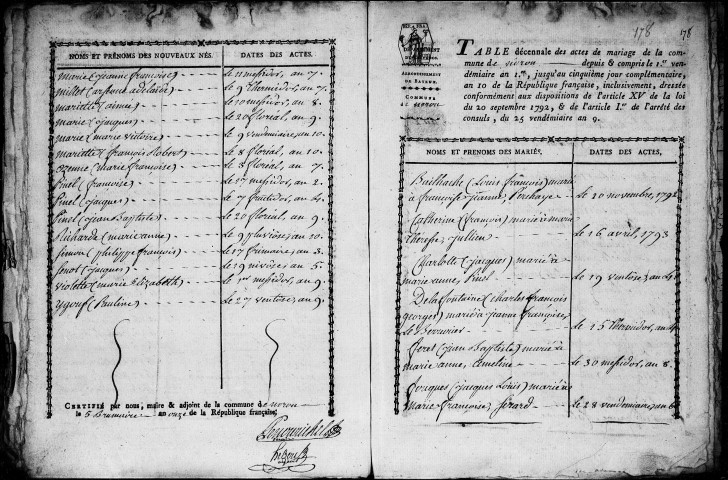 NOMS ET PRÉNOMS DES NOUVEAUX NÉS. DATES DES ACTES.
marie (jeanne françoise) le 11 messidor, an 7.
millet (arsenne adelaide) le 9 thermidor, an 7.
mariette (aimée) le 10 messidor, an 8.
marie (jacques) le 20 floréal, an 9.
marie (marie victoire) le 9 vendemiaire, an 10.
mariette (françois Robert) le 8 floréal, an 10.
ozenne (marie françoise) le 8 floréal, an 7.
Pinel (françoise) le 17 messidor, an 2.
Pinel (jacques) le 7 fructidor, an 4.
Pinel (jean Baptiste) le 20 floréal, an 9.
Richarde (marie anne) le 9 pluviose, an 10.
(philippe françois) le 17 frimaire, an 3.
(jacques) le 19 nivôse, an 5.
violette (marie Elizabeth) le 1er messidor, an 9.
ygouf (Pauline) le 27 ventose, an 9.
CERTIFIÉ par nous, maire & adjoint de la commune de neron
le 5 brumaire an onze de la République française.
178 178
ARRONDISSEMENT
DE BAYEUX.
COMMUNE
TABLE décennale des actes de mariage de la com-
mune de neron depuis & compris le 1.er ven-
démiaire an 1.er, jusqu'au cinquième jour complémentaire,
an 10 de la République française, inclusivement, dressée
conformément aux dispositions de l'article XV de la loi
du 20 septembre 1792, & de l'article I.er de l'arrêté des
consuls, du 25 vendémiaire an 9.
NOMS ET PRENOMS DES MARIÉS. DATES DES ACTES.
Bailhache (Louis françois) marié
à françoise jeanne le 20 novembre, 1792
Catherine (françois) marié à marie
Therese, jullien le 16 avril, 1793
Charlotte (jacques) marié à
marie anne, Pinel le 19 ventose, an 4
Delafontaine (charles françois
georges) marié à jeanne françoise,
le Berrurier le 15 thermidor, an 4
feret (jean Baptiste) marié à
marie anne, ameline le 30 messidor, an 8.
(jacques Louis) marié à
Marie françoise, Sérard le 28 vendemiaire, an 6